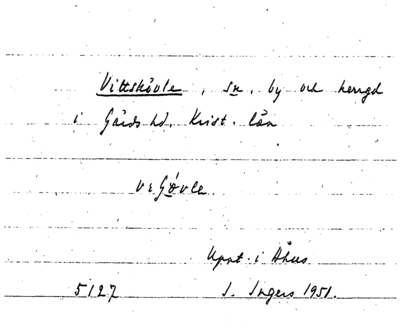 Vittskövle, sn, by och herrgd
i Gärds hd, Krist. län
Uppt. i Åhus
5127 I. Ingers 1951.